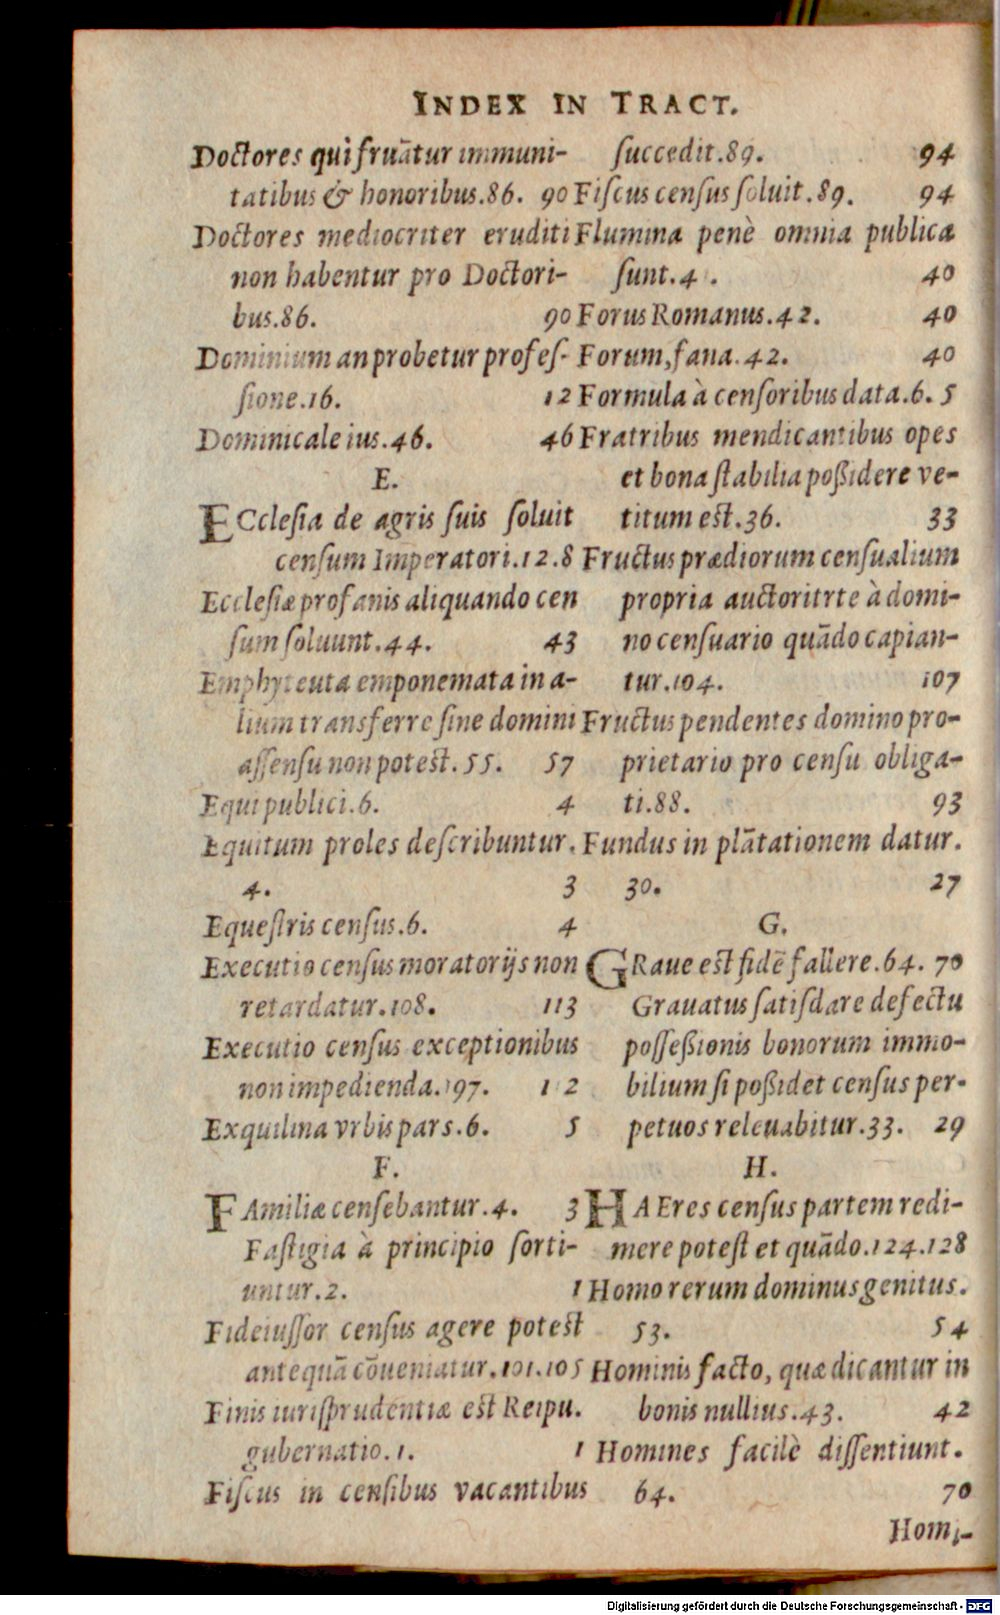 INDEX IN TRACT.
Doctores qui fruātur immuni-
tatibus & honoribus.86. 90
Doctores mediocriter eruditi
non habentur pro Doctori-
bus.86. 90
Dominium an probetur profeſ-
ſione.16. 12
Dominicale ius.46. 46
E.
ECcleſia de agris ſuis ſoluit
cenſum Imperatori.12.8
Eccleſiæ profanis aliquando cen
ſum ſoluunt.44. 43
Emphyteuta emponemata in a-
lium transferre ſine domini
aſſenſu non poteſt.55. 57
Equi publici.6. 4
Equitum proles deſcribuntur.
4. 3
Equeſtris cenſus.6. 4
Executio cenſus moratorijs non
retardatur.108. 113
Executio cenſus exceptionibus
non impedienda.197. 112
Exquilina vrbis pars.6. 5
F.
FAmiliæ cenſebantur.4. 3
Faſtigia à principio ſorti-
untur.2. 1
Fideiuſſor cenſus agere poteſt
antequā cōueniatur.101.105
Finis iuriſprudentiæ eſt Reipu.
gubernatio.1. 1
Fiſcus in cenſibus vacantibus
ſuccedit.89. 94
Fiſcus cenſus ſoluit.89. 94
Flumina penè omnia publica
ſunt.4 . 40
Forus Romanus.42. 40
Forum, fana.42. 40
Formula à cenſoribus data.6. 5
Fratribus mendicantibus opes
et bona ſtabilia poßidere ve-
titum eſt.36. 33
Fructus prædiorum cenſualium
propria auctoritrte à domi-
no cenſuario quādo capian-
tur.104. 107
Fructus pendentes domino pro-
prietario pro cenſu obliga-
ti.88. 93
Fundus in plātationem datur.
30. 27
G.
GRaue eſt fidē fallere.64. 70
Grauatus ſatiſdare defectu
poſſeßionis bonorum immo-
bilium ſi poßidet cenſus per-
petuos releuabitur.33. 29
H.
HAEres cenſus partem redi-
mere poteſt et quādo.124.128
Homo rerum dominus genitus.
53. 54
Hominis facto, quæ dicantur in
bonis nullius.43. 42
Homines facilè diſſentiunt.
64. 70
Homi-
Digitalisierung gefördert durch die Deutsche Forschungsgemeinschaft - DFG